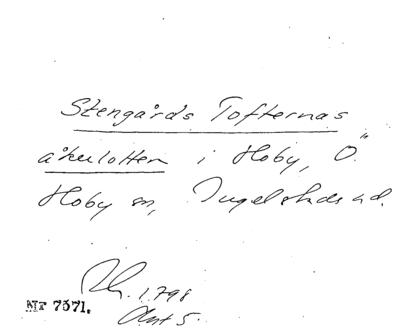 Stengårds Tofternas
åkerlotten i Hoby, Ö.
Hoby sn, Ingelstads hd.
Rh. 1798
Akt 5.
NT 7571.